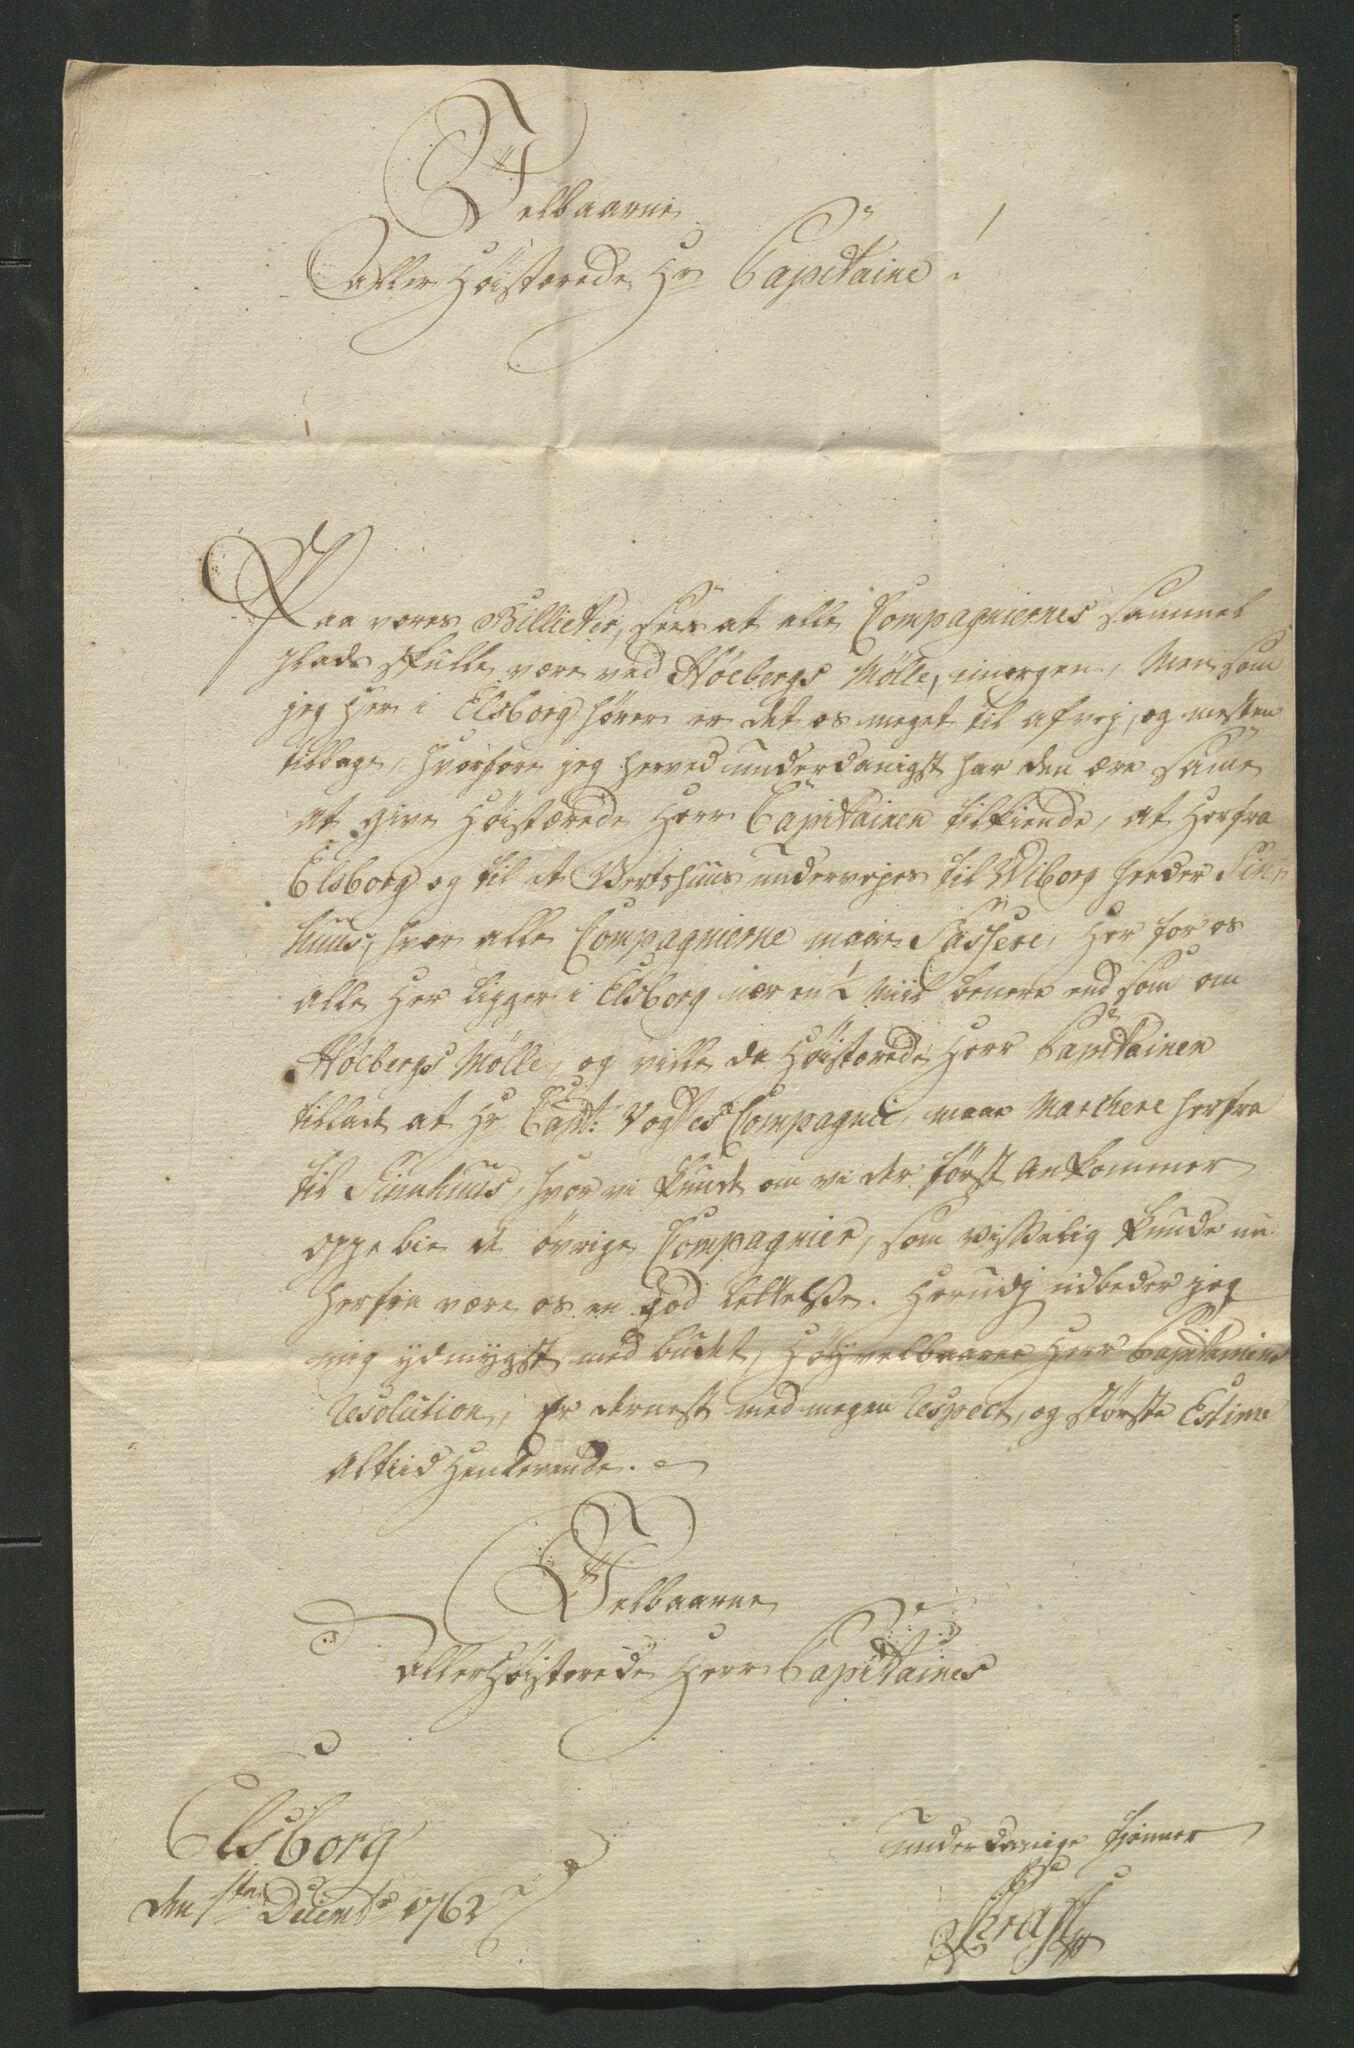 Velbaarne
Aller Høistærede Hr Capitaine!
Paa vores Billietter, sees at alle Compagniernes sammel
plads skulle være ved Høebergs Mölle, imorgen, Men som
jeg Her i Elsborg hører er det os meget til afvej, og mesten
tilbage, hvorfore jeg herved underdanigst har den ære
at give Høistærede Herr Capitainen tilkiende, at Herfra
Elsborg og til et Vertshuus undervejes til Wiborg heeder
huus, hvor alle Compagnierne maae Passere, Her for os
alle Her ligger i Elsborg nær en ½ Miil benere end som om
Høebergs Mölle, og ville da Høistærede Herr Capitainen
tillade at Hr Capt: Vogtes Compagnie, maae Marchere herfra
til Sinnhuus, hvor vi kunde om vi der først ankommer
oppebie de övrige Compagnier, som visselig kunde nu
herfra være os en god lettelsse. Herudj udbeder jeg
mig ydmygst med budet, Høyvelbaarne Herr Capitainens
Resolution, Er dernest med megen Respect, og störste Estime
Altiid Henlevende.
Velbaarne
Allerhøistærede Herr Capitaines
Elsborg
den 1ste Decembr 1762
underdanige tienner
Krafft